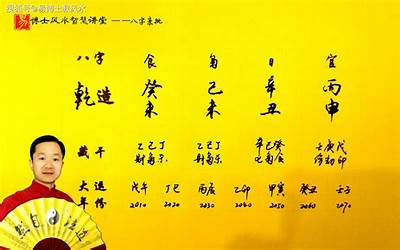 易 博士风水智慧讲堂 ——八字
八字 食 枭 日 官
乾造 癸 己 辛 丙
未 未 丑 申
藏干 乙己丁 乙己丁 辛己癸 壬庚戊
财枭杀 财枭杀 比枭食 伤劫印
大运 戊午 丁巳 丙辰 乙卯 甲寅 癸丑 壬子
年份 2010 2020 2030 2040 2050 2060 2070